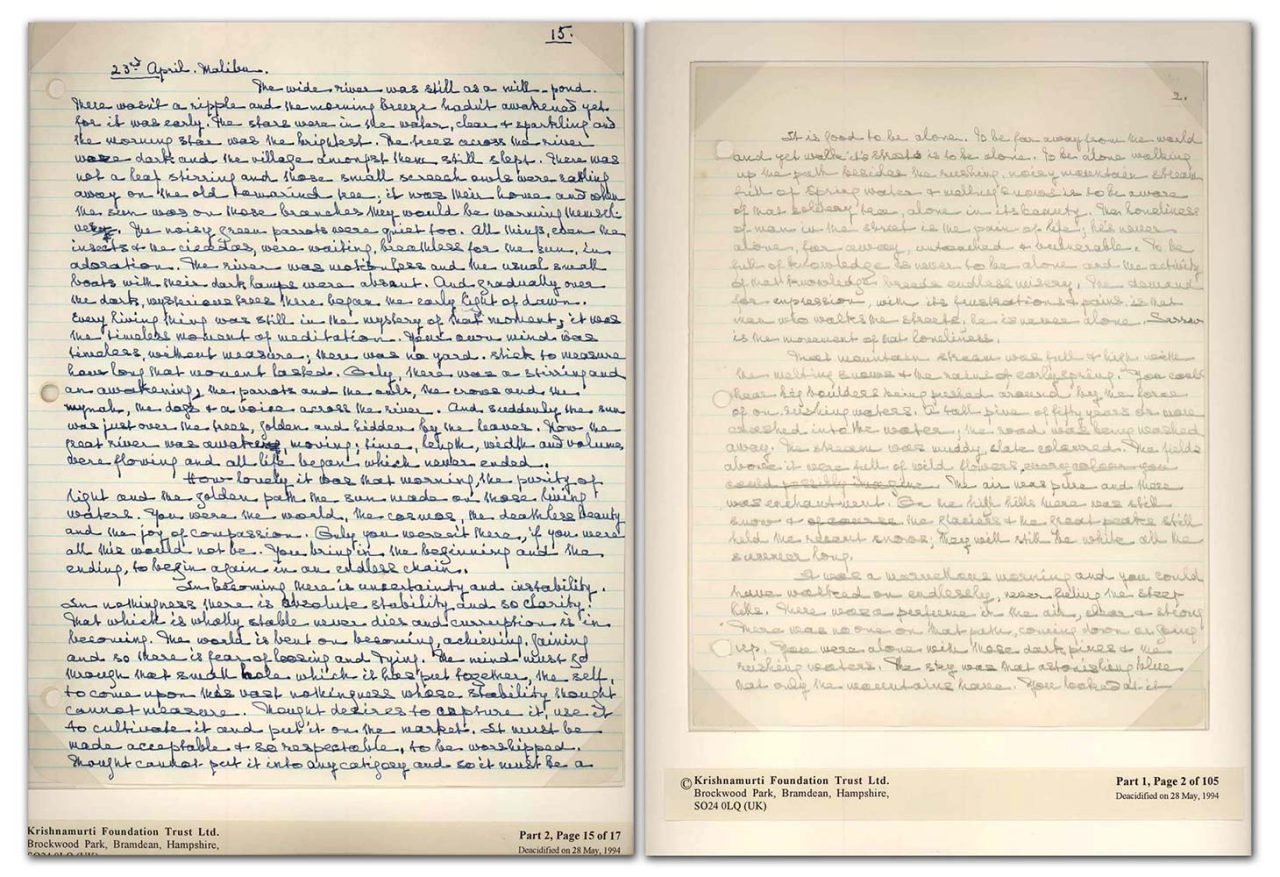 15.
23rd April. Malibu.
The wide river was still as a mill-pond.
There wasn't a ripple and the morning breeze hadn't awakened yet
for it was early. The stars were in the water, clear & sparkling and
the morning star was the brightest. The trees across the river
were dark and the village amongst them still slept. There was
not a leaf stirring and those small screech owls were rattling
away on the old tamarind tree; it was their home and when
the sun was on those branches they would be warming themsel-
ves. The noisy green parrots were quiet too. All things, even the
insects & the cicadas, were waiting, breathless for the sun, in
adoration. The river was motionless and the usual small
boats with their dark lamps were absent. And gradually over
the dark, mysterious trees there began the early light of dawn.
Every living thing was still in the mystery of that moment; it was
the timeless moment of meditation. Your own mind was
timeless, without measure; there was no yard-stick to measure
how long that moment lasted. Only, there was a stirring and
an awakening, the parrots and the owls, the crows and the
mynah, the dogs & a voice across the river. And suddenly the sun
was just over the trees, golden and hidden by the leaves. Now the
great river was awake, moving; time, length, width and volume
were flowing and all life began which never ended.
How lovely it was that morning, the purity of
light and the golden path the sun made on those living
waters. You were the world, the cosmos, the deathless beauty
and the joy of compassion. Only you weren't there, if you were
all this would not be. You bring in the beginning and the
ending, to begin again in an endless chain.
In becoming there is uncertainty and instability.
In nothingness there is absolute stability and so clarity.
That which is wholly stable never dies and curruption is in
becoming. The world is bent on becoming, achieving, gaining
and so there is fear of loosing and dying. The mind must go
through that small hole which it has put together, the self,
to come upon this vast nothingness whose stability thought
cannot measure. Thought desires to capture it, use it
to cultivate it and put it on the market. It must be
made acceptable & so respectable, to be worshipped.
Thought cannot put it into any catigory and so it must be a
Krishnamurti Foundation Trust Ltd.
Brockwood Park, Bramdean, Hampshire,
SO24 0LQ (UK)
Part 2, Page 15 of 17
Deacidified on 28 May, 1994
2.
It is good to be alone. To be far away from the world
and yet walk it's streets is to be alone. To be alone walking
up the path besides the rushing, noisy mountain stream
full of spring water & melting snows is to be aware
of that solitary tree, alone in its beauty. The loneliness
of man in the street is the pain of life; he's never
alone, far away, untouched & vulnerable. To be
full of knowledge is never to be alone and the activity
of that knowledge breeds endless misery. The demand
for expression, with its frustrations & pains, is that
man who walks the streets; he is never alone. Sorrow
is the movement of that loneliness.
That mountain stream was full & high with
the melting snows & the rains of early spring. You could
hear big boulders being pushed around by the force
of on rushing waters. A tall pine of fifty years or more
crashed into the water; the road was being washed
away. The stream was muddy, slate coloured. The fields
above it were full of wild flowers, every colour you
could possibly imagine. The air was pure and there
was enchantment. On the high hills there was still
snow & of course the glaciers & the great peaks still
held the recent snows; they will still be white all the
summer long.
It was a marvellous morning and you could
have walked on endlessly, never feeling the steep
hills. There was a perfume in the air, clear & strong
There was no one on that path, coming down or going
up. You were alone with those dark pines & the
rushing waters. The sky was that astonishing blue
that only the mountains have. You looked at it
© Krishnamurti Foundation Trust Ltd.
Brockwood Park, Bramdean, Hampshire,
SO24 0LQ (UK)
Part 1, Page 2 of 105
Deacidified on 28 May, 1994